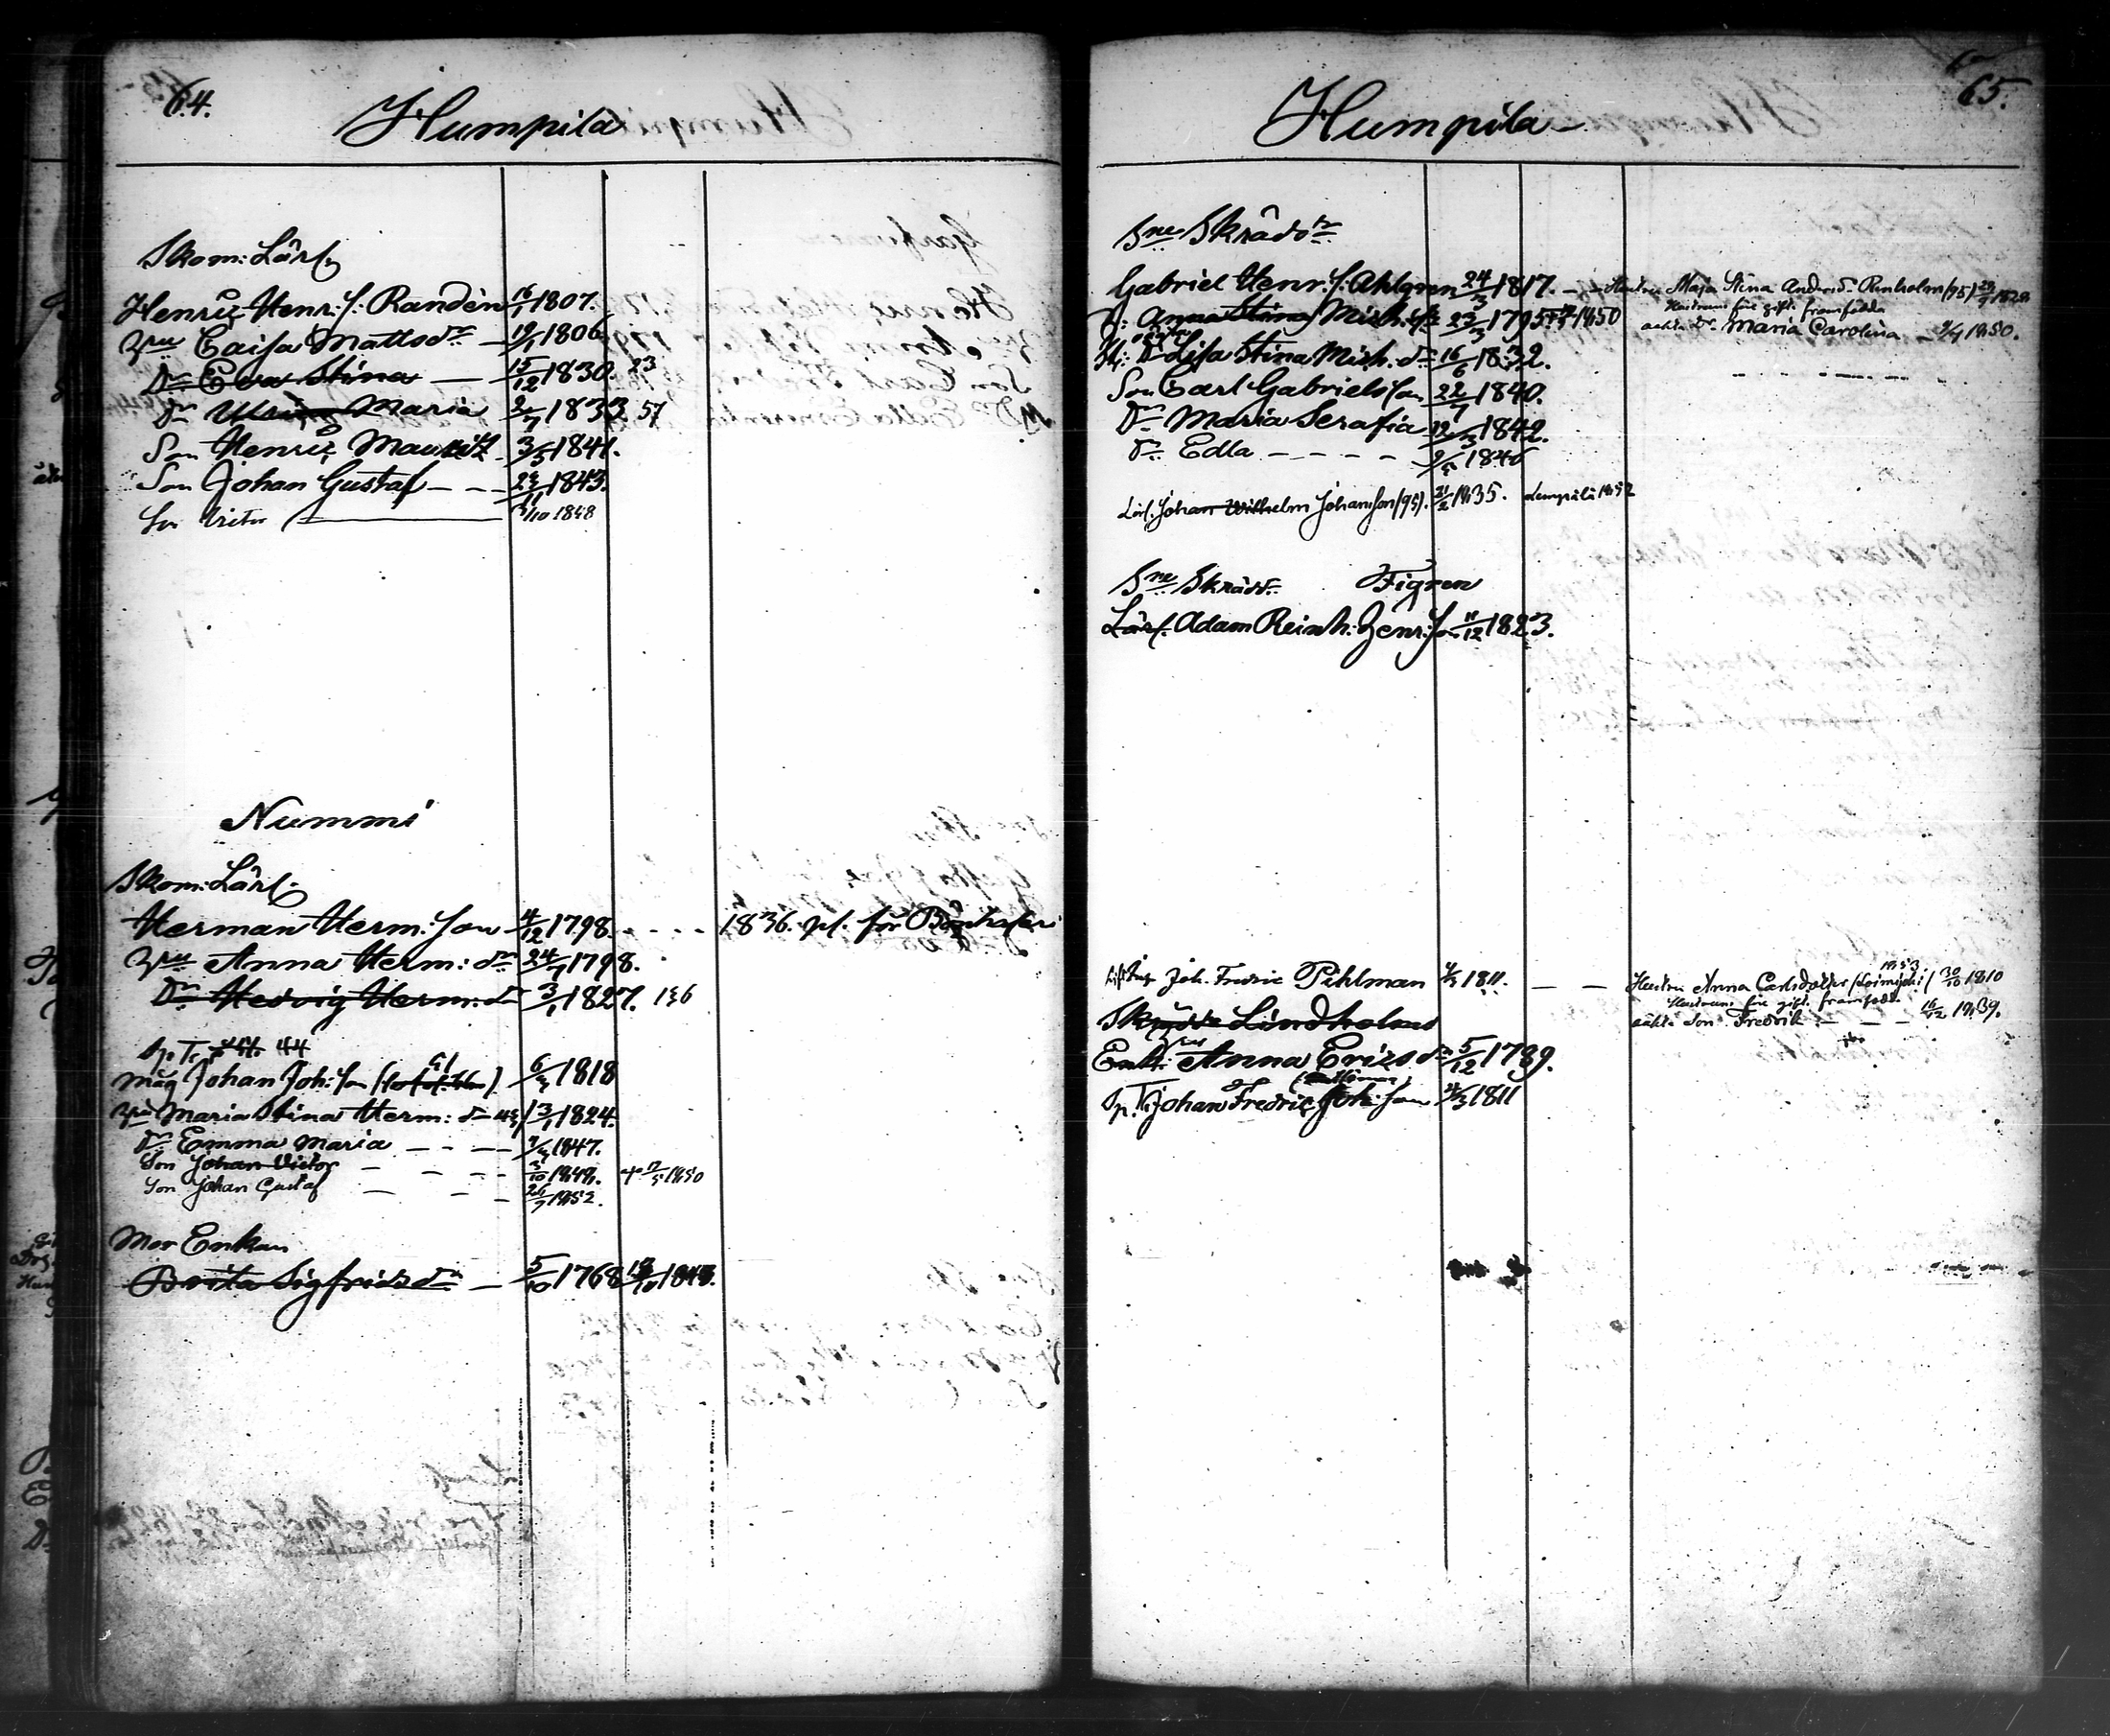 64.
Humpila
Skom: Lärl.
Henric Henr: S: Randen 16/1 1807.
Hru Caisa Mattsdr 19/1 1806
Dr Eva Stina 15/12 1830. 23
Dr Maria 2/7 1833 57
Son Henric Mauritz 3/5 1841.
Son Johan Gustaf 24/11 1843.
Son Victor 3/10 1848
Nummi
Skom: Lärl.
Herman Herm: Son 4/12 1798. 1836. pl. för
Hru Anna Herm: dr 24/7 1798.
Dr Hedvig Herm: dr 3/1 1827. 136
Sp Tr 44
Måg Johan Joh: Son 6/3 1818
Hru Maria Stina Herm: dr 3/1 1824.
Dr Emma Maria 1847.
Son Johan Victor 3/10 1849. + 12/5 1850
Son Johan Gustaf 26/7 1852.
Mor Enkan
Brita Sigfridsdr 5/10 1768 1847.
65.
Humpila
Sne Skrädr
Gabriel Henr: S: Ahlgren 24/3 1817. Hustru Maja Stina Andersd. Renholm (95) 1828
H: Anna Stina Mich: dr 23/3 1795 1850 Hustrun före gift. framfödda
Dr Lisa Stina Mich. dr 16/6 1832. äkta Dr Maria Carolina 9/4 1850.
Son Carl Gabrielsson 22/7 1840.
Dr Maria Serafia 12/3 1842.
Dr Edla 1846
Lärl. Johan Wilhelm Johansson (95). 21/2 1835. Lempälä 1852
Sne Skrädd. Tigren
Lärl. Adam Reinh: Henr: Son 11/12 1823.
Joh. Fredric Pihlman 4/3 1811. Hustru Anna Carlsdotter (Loimijoki 1853) 30/10 1810
Skrädd Lindholms Hustrun före gift. framfödde
äkta Son Fredrik 16/12 1839.
Enk: Anna Ericsdr 5/12 1789.
Sp. Tr. Johan Fredric Joh: Son 4/3 1811